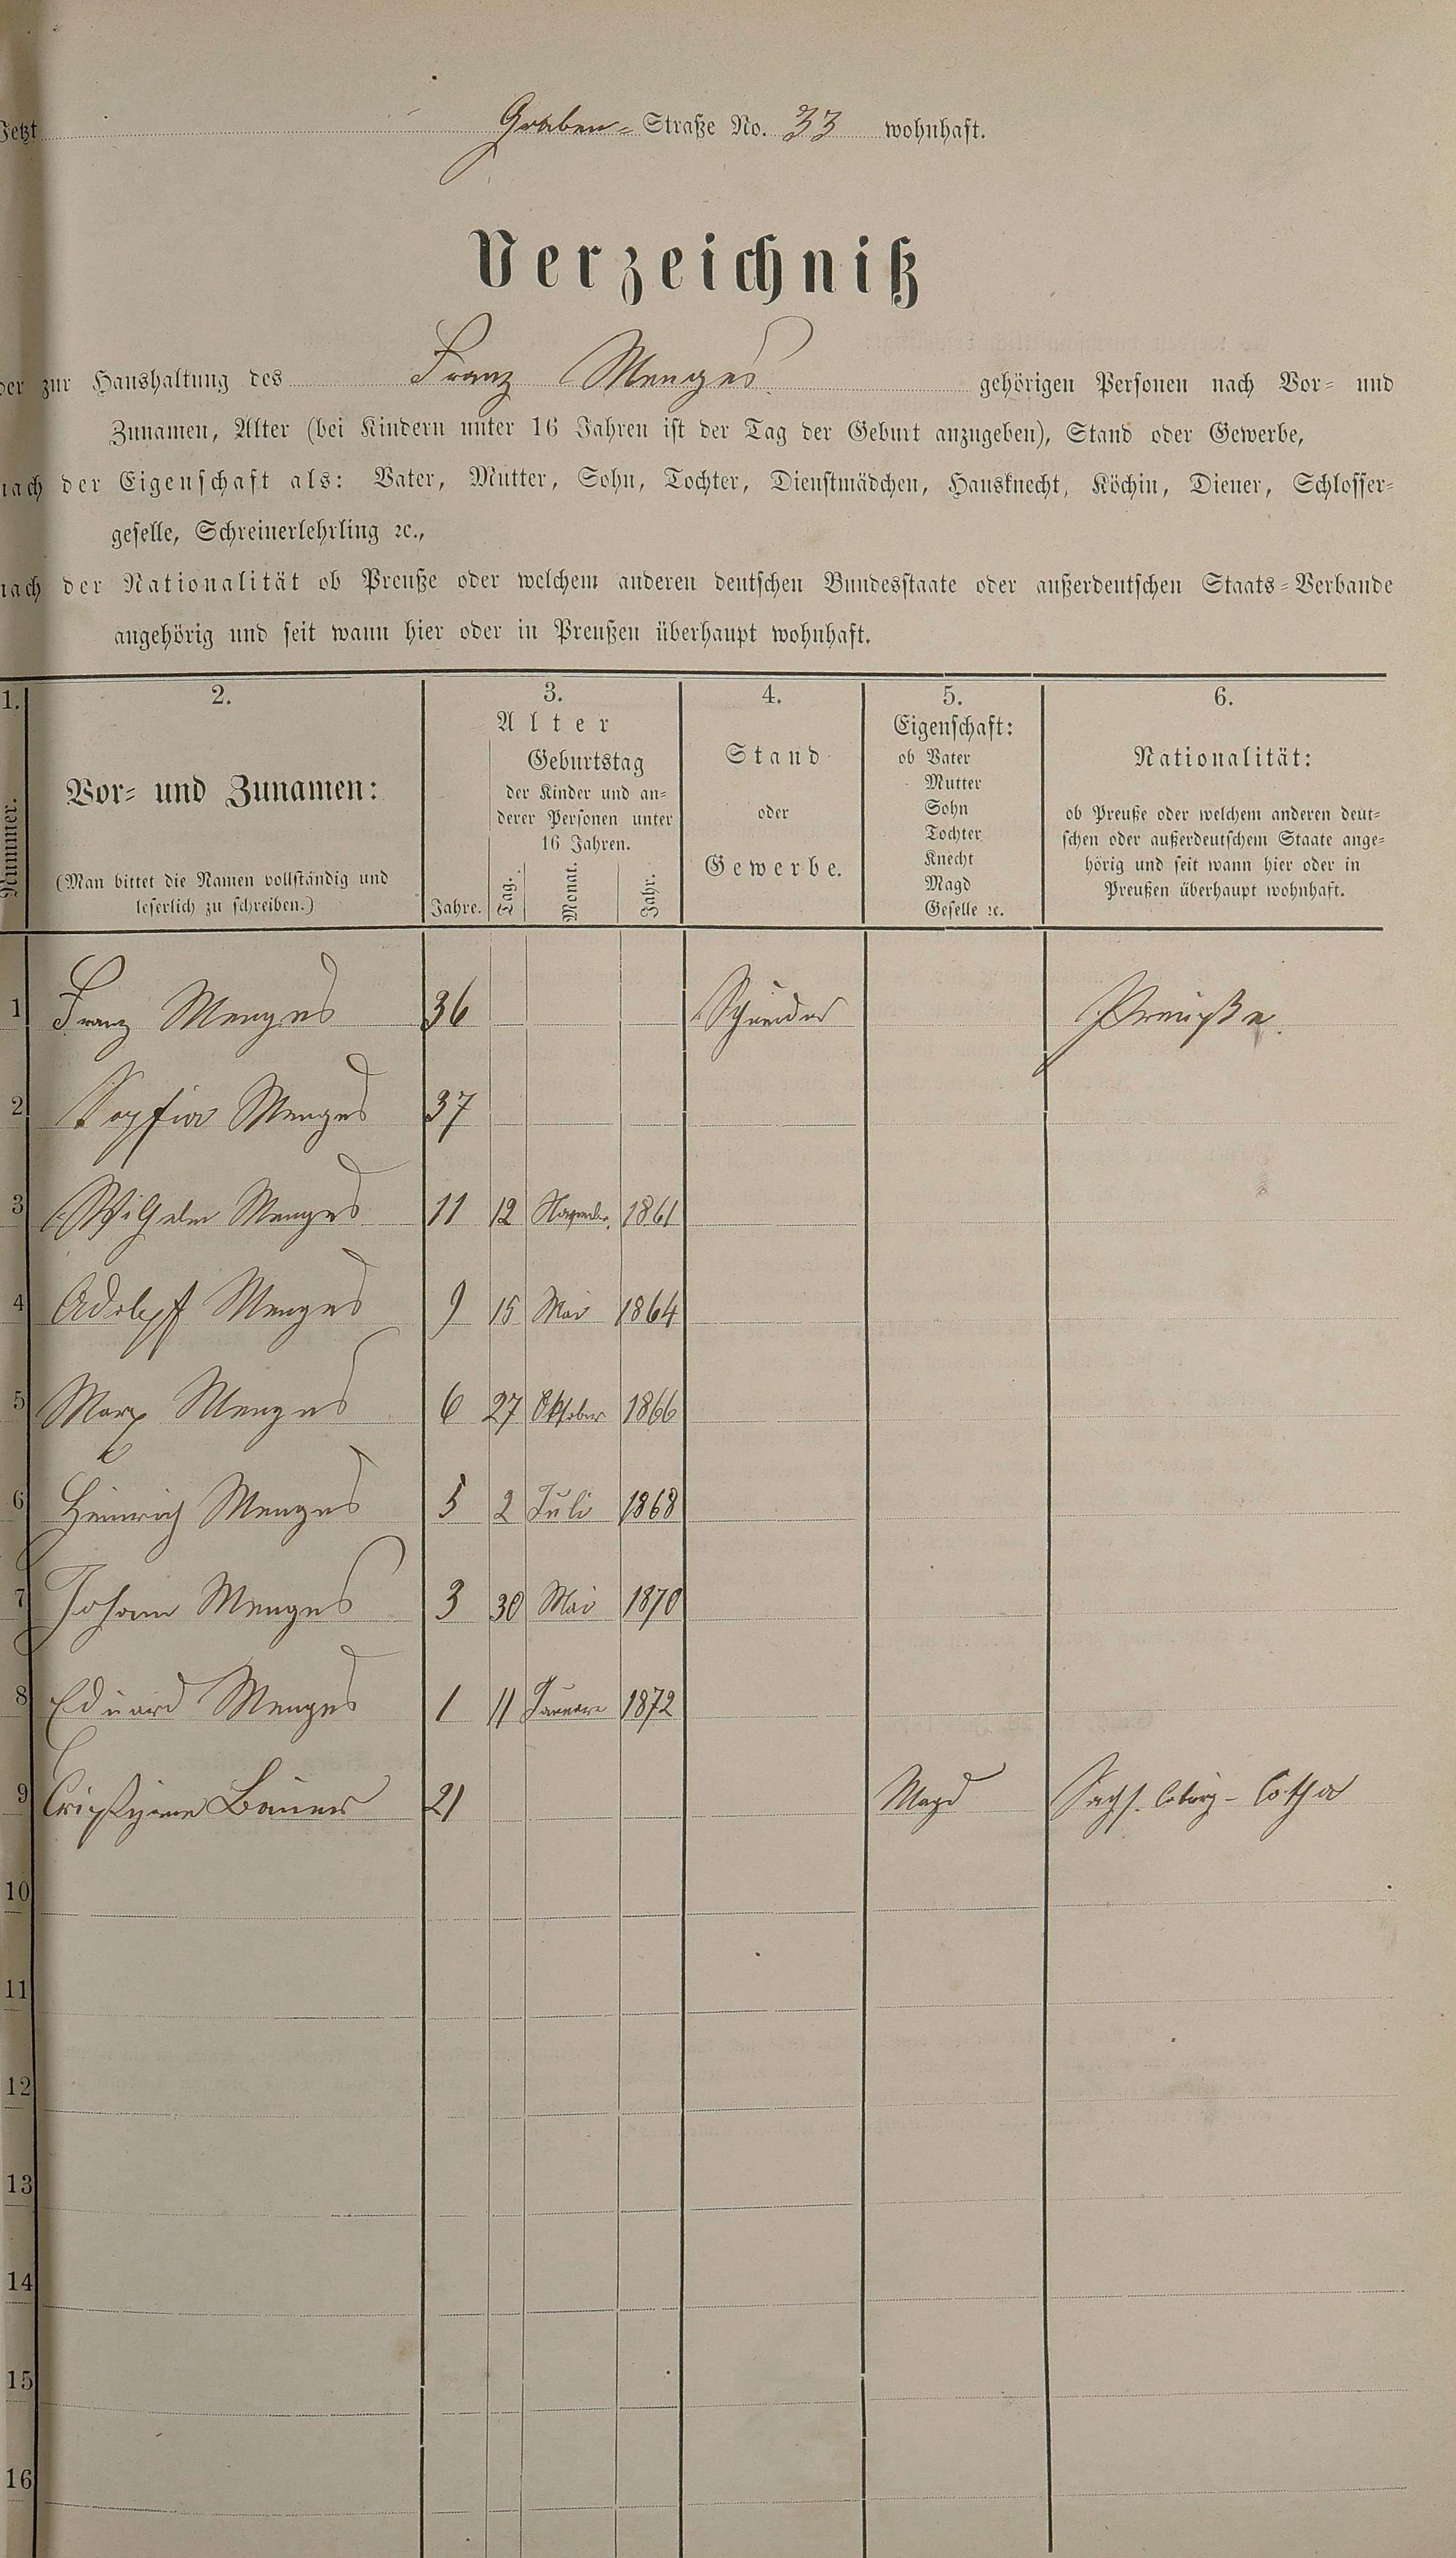 Jetzt Graben- Straße No. 33 wohnhaft.
Verzeichniß
der zur Haushaltung des Franz Menges gehörigen Personen nach Vor- und
Zunamen, Alter (bei Kindern unter 16 Jahren ist der Tag der Geburt anzugeben), Stand oder Gewerbe,
nach der Eigenschaft als: Vater, Mutter, Sohn, Tochter, Dienstmädchen, Hausknecht, Köchin, Diener, Schlosser-
geselle, Schreinerlehrling ꝛc.,
nach der Nationalität ob Preuße oder welchem anderen deutschen Bundesstaate oder außerdeutschen Staats-Verbande
angehörig und seit wann hier oder in Preußen überhaupt wohnhaft.
1.
Nummer.
2.
Vor- und Zunamen:
(Man bittet die Namen vollständig und
leserlich zu schreiben.)
3.
Alter
Jahre.
Geburtstag
der Kinder und an-
derer Personen unter
16 Jahren.
Tag. Monat. Jahr.
4.
Stand
oder
Gewerbe.
5.
Eigenschaft:
ob Vater
Mutter
Sohn
Tochter
Knecht
Magd
Geselle ꝛc.
6.
Nationalität:
ob Preuße oder welchem anderen deut-
schen oder außerdeutschem Staate ange-
hörig und seit wann hier oder in
Preußen überhaupt wohnhaft.
1 Franz Menges 36 Schneider Preuße.
2 Sophia Menges 37
3 Wilhelm Menges 11 12 1861
4 Adolph Menges 9 15 Mai 1864
5 Marx Menges 6 27 Oktober 1866
6 Heinrich Menges 5 2 Juli 1868
7 Johann Menges 3 30 Mai 1870
8 Eduard Menges 1 11 1872
9 21 Magd Sachs. Coburg-Cotha
10
11
12
13
14
15
16